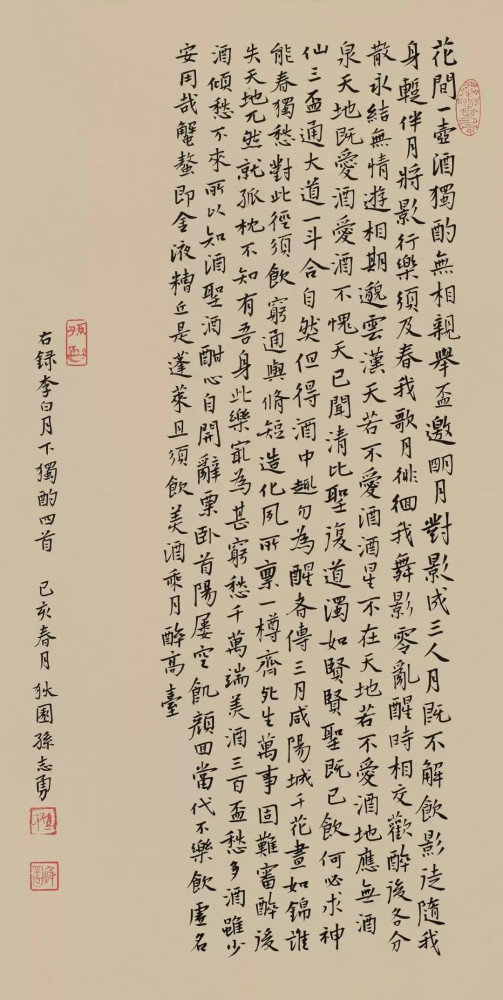 花間一壺酒獨酌無相親舉盃邀明月對影成三人月既不解飲影徒隨我
身暫伴月將影行樂須及春我歌月徘徊我舞影零亂醒時相交歡醉後各分
散永結無情遊相期邈雲漢天若不愛酒酒星不在天地若不愛酒地應無酒
泉天地既愛酒愛酒不愧天已聞清比聖復道濁如賢賢聖既已飲何必求神
仙三盃通大道一斗合自然但得酒中趣勿為醒者傳三月咸陽城千花晝如錦誰
能春獨愁對此徑須飲窮通與脩短造化夙所稟一樽齊死生萬事固難審醉後
失天地兀然就孤枕不知有吾身此樂冣為甚窮愁千萬端美酒三百盃愁多酒雖少
酒傾愁不來所以知酒聖酒酣心自開辭粟臥首陽屢空飢顏回當代不樂飲虛名
安用哉蟹螯即金液糟丘是蓬萊且須飲美酒乘月醉高臺
右錄李白月下獨酌四首 己亥春月狄園孫志勇